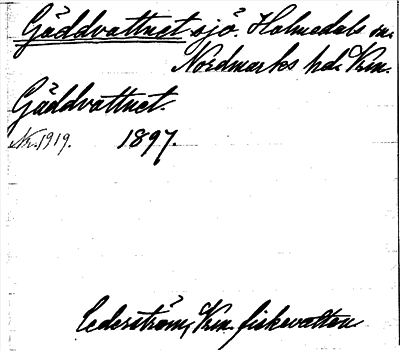 Gäddvattnet sjö. Holmedals sn.
Nordmarks hd. Vrm.
Gäddvattnet.
Nr. 1919. 1897.
Cederström, Vrm. fiskevatten